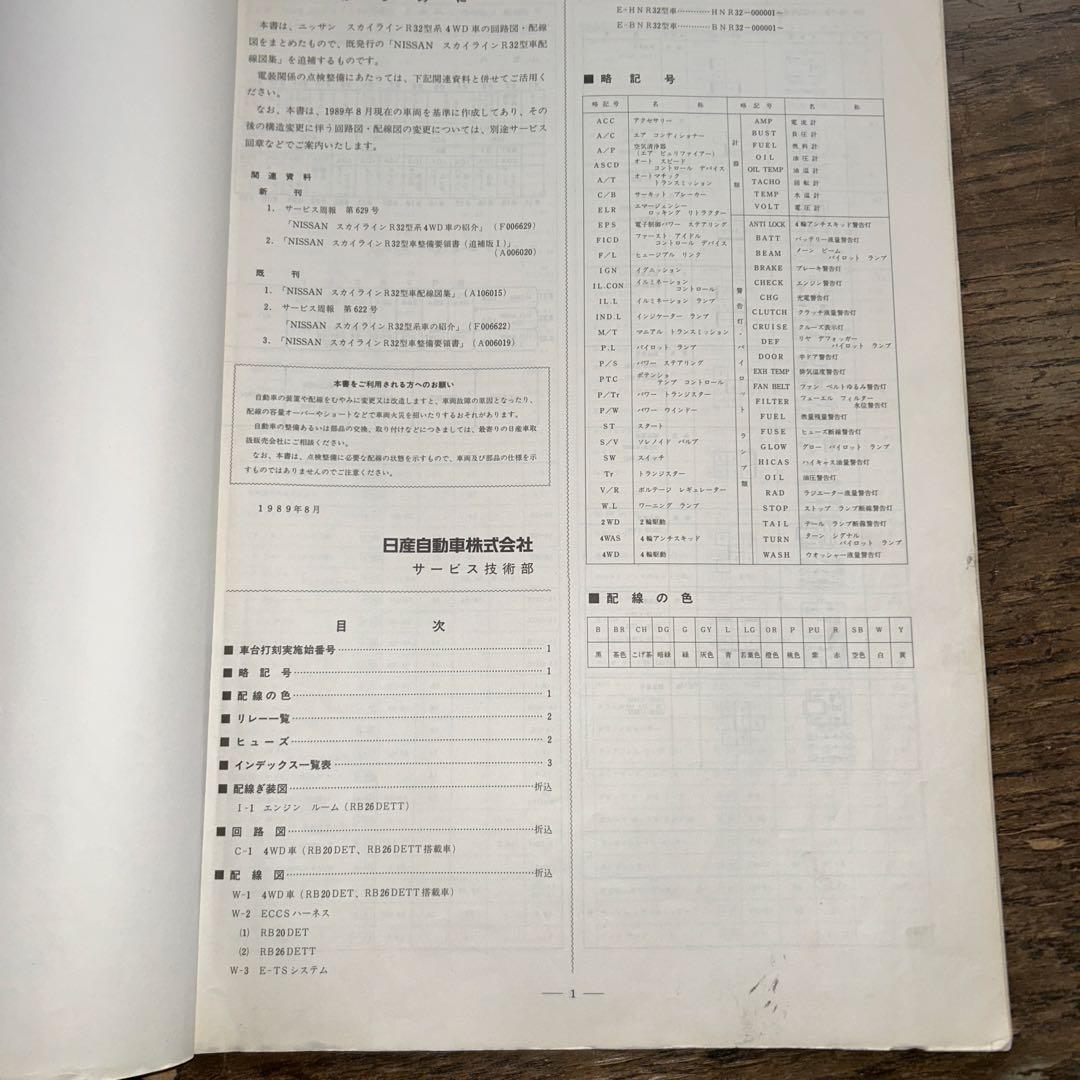 本書は、ニッサン スカイラインR32型系4WD車の回路図・配線
図をまとめたもので、既発行の「NISSAN スカイラインR32型車配
線図集」を追補するものです。
電装関係の点検整備にあたっては、下記関連資料と併せてご活用く
ださい。
なお、本書は、1989年8月現在の車両を基準に作成してあり、その
後の構造変更に伴う回路図・配線図の変更については、別途サービス
回章などでご案内いたします。
関連資料
新刊
1. サービス周報 第629号
「NISSAN スカイラインR32型系4WD車の紹介」(F006629)
2. 「NISSAN スカイラインR32型車整備要領書(追補版I)」
(A006020)
既刊
1. 「NISSAN スカイラインR32型車配線図集」(A106015)
2. サービス周報 第622号
「NISSAN スカイラインR32型系車の紹介」(F006622)
3. 「NISSAN スカイラインR32型車整備要領書」(A006019)
本書をご利用される方へのお願い
自動車の装置や配線をむやみに変更又は改造しますと、車両故障の原因となったり、
配線の容量オーバーやショートなどで車両火災を招いたりするおそれがあります。
自動車の整備あるいは部品の交換、取り付けなどにつきましては、最寄りの日産車取
扱販売会社にご相談ください。
なお、本書は、点検整備に必要な配線の状態を示すもので、車両及び部品の仕様を示
すものではありませんのでご注意ください。
1989年8月
日産自動車株式会社
サービス技術部
目次
■ 車台打刻実施始番号……1
■ 略記号……1
■ 配線の色……1
■ リレー一覧……2
■ ヒューズ……2
■ インデックス一覧表……3
■ 配線ぎ装図……折込
I-1 エンジン ルーム(RB26DETT)
■ 回路図……折込
C-1 4WD車(RB20DET、RB26DETT搭載車)
■ 配線図……折込
W-1 4WD車(RB20DET、RB26DETT搭載車)
W-2 ECCSハーネス
(1) RB20DET
(2) RB26DETT
W-3 E-TSシステム
E-HNR32型車…………HNR32-000001~
E-BNR32型車…………BNR32-000001~
■ 略記号
略記号 名称
ACC アクセサリー
A/C エア コンディショナー
A/P 空気清浄器
(エア ピュリファイアー)
ASCD オート スピード
コントロール デバイス
A/T オートマチック
トランスミッション
C/B サーキット ブレーカー
ELR エマージェンシー
ロッキング リトラクター
EPS 電子制御パワー ステアリング
FICD ファースト アイドル
コントロール デバイス
F/L ヒュージブル リンク
IGN イグニッション
IL.CON イルミネーション
コントロール
IL.L イルミネーション ランプ
IND.L インジケーター ランプ
M/T マニアル トランスミッション
P.L パイロット ランプ
P/S パワー ステアリング
PTC ポテンショ
テンプ コントロール
P/Tr パワー トランジスター
P/W パワー ウインドー
ST スタート
S/V ソレノイド バルブ
SW スイッチ
Tr トランジスター
V/R ボルテージ レギュレーター
W.L ワーニング ランプ
2WD 2輪駆動
4WAS 4輪アンチスキッド
4WD 4輪駆動
略記号 名称
計器類
AMP 電流計
BUST 負圧計
FUEL 燃料計
OIL 油圧計
OIL TEMP 油温計
TACHO 回転計
TEMP 水温計
VOLT 電圧計
警告灯・パイロットランプ類
ANTI LOCK 4輪アンチスキッド警告灯
BATT バッテリー液量警告灯
BEAM メーン ビーム
パイロット ランプ
BRAKE ブレーキ警告灯
CHECK エンジン警告灯
CHG 充電警告灯
CLUTCH クラッチ液量警告灯
CRUISE クルーズ表示灯
DEF リヤ デフォッガー
パイロット ランプ
DOOR 半ドア警告灯
EXH TEMP 排気温度警告灯
FAN BELT ファン ベルトゆるみ警告灯
FILTER フューエル フィルター
水位警告灯
FUEL 燃量残量警告灯
FUSE ヒューズ断線警告灯
GLOW グロー パイロット ランプ
HICAS ハイキャス油量警告灯
OIL 油圧警告灯
RAD ラジエーター液量警告灯
STOP ストップ ランプ断線警告灯
TAIL テール ランプ断線警告灯
TURN ターン シグナル
パイロット ランプ
WASH ウオッシャー液量警告灯
■ 配線の色
B BR CH DG G GY L LG OR P PU R SB W Y
黒 茶色 こげ茶 暗緑 緑 灰色 青 若葉色 橙色 桃色 紫 赤 空色 白 黄
― 1 ―